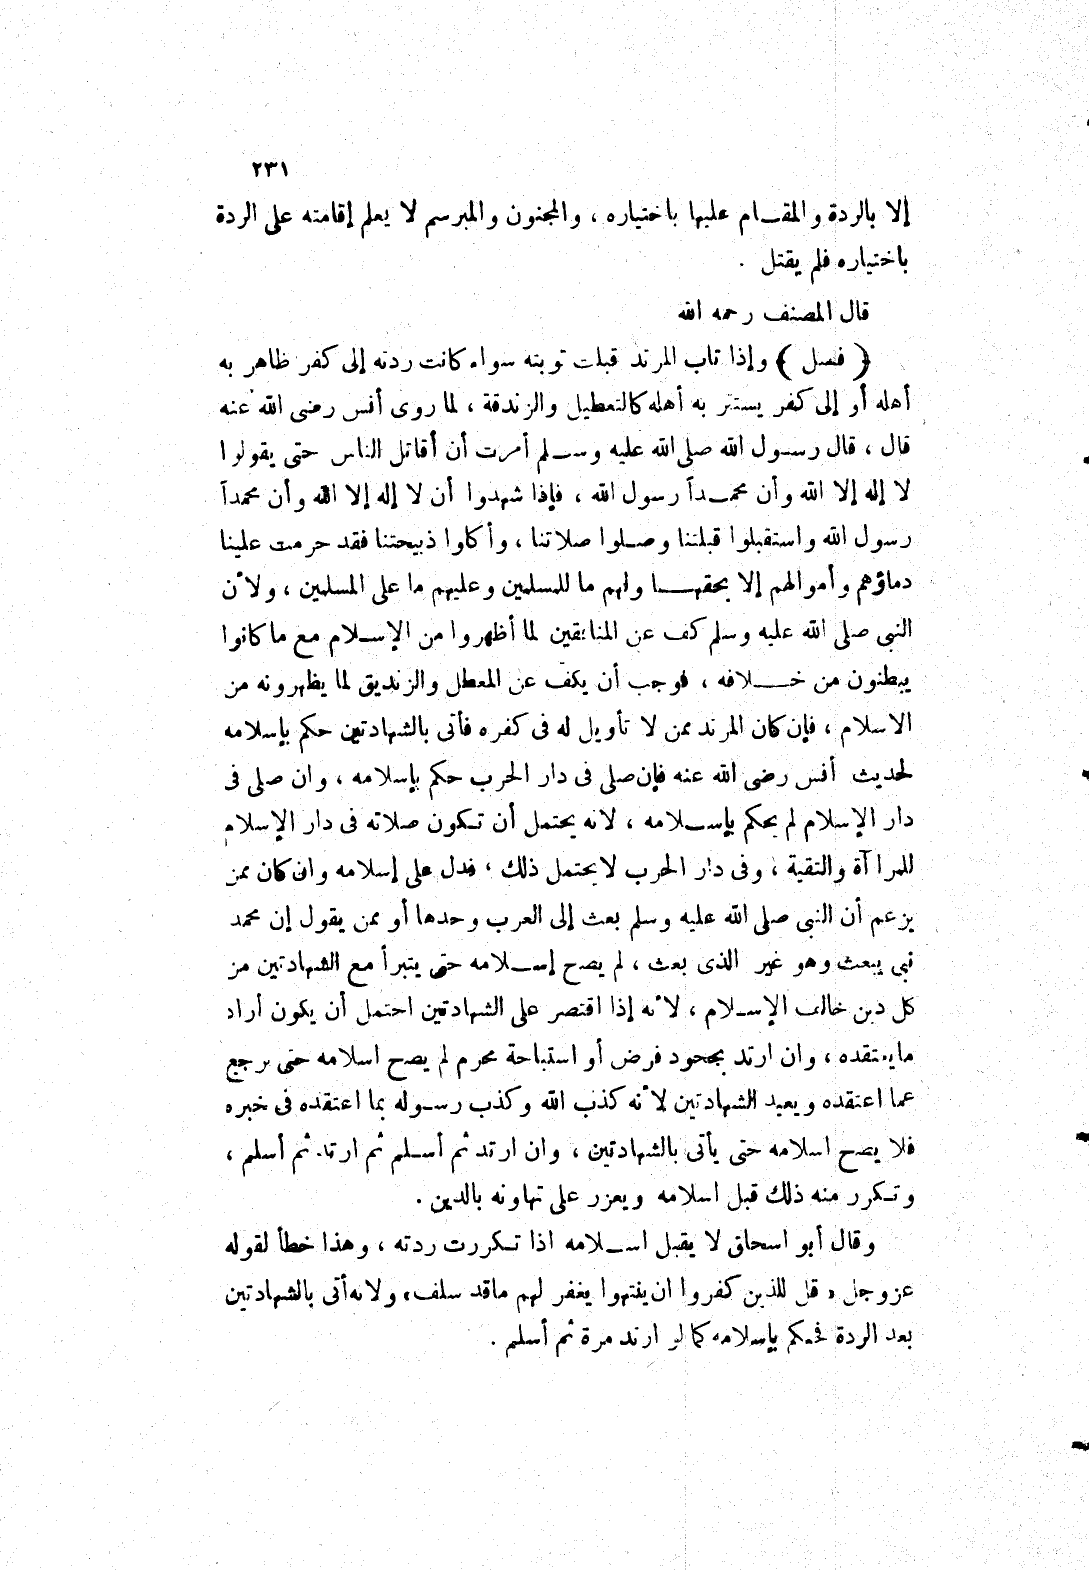 ٢٣١
إلا بالردة والمقام عليها باختياره ، والمجنون والمبرسم لا يعلم إقامته على الردة
باختياره فلم يقتل .
قال المصنف رحمه الله
( فصل ) وإذا تاب المرتد قبلت توبته سواء كانت ردته إلى كفر ظاهر به
أهله أو إلى كفر يستتر به أهله كالتعطيل والزندقة ، لما روى أنس رضى الله عنه
قال ، قال رسول الله صلى الله عليه وسلم أمرت أن أقاتل الناس حتى يقولوا
لا إله إلا الله وأن محمداً رسول الله ، فإذا شهدوا أن لا إله إلا الله وأن محمداً
رسول الله واستقبلوا قبلتنا وصلوا صلاتنا ، وأكلوا ذبيحتنا فقد حرمت علينا
دماؤهم وأموالهم إلا بحقها ولهم ما للمسلمين وعليهم ما على المسلمين ، ولأن
النبى صلى الله عليه وسلم كف عن المنافقين لما أظهروا من الإسلام مع ما كانوا
يبطنون من خلافه ، فوجب أن يكف عن المعطل والزنديق لما يظهرونه من
الاسلام ، فإن كان المرتد ممن لا تأويل له فى كفره فأتى بالشهادتين حكم بإسلامه
لحديث أنس رضى الله عنه فإن صلى فى دار الحرب حكم بإسلامه ، وان صلى فى
دار الإسلام لم يحكم بإسلامه ، لانه يحتمل أن تكون صلاته فى دار الإسلام
للمراآة والتقية ، وفى دار الحرب لا يحتمل ذلك ، فدل على إسلامه وان كان ممن
يزعم أن النبى صلى الله عليه وسلم بعث إلى العرب وحدها أو ممن يقول إن محمد
نبى يبعث وهو غير الذى بعث ، لم يصح إسلامه حتى يتبرأ مع الشهادتين من
كل دين خالف الإسلام ، لأنه إذا اقتصر على الشهادتين احتمل أن يكون أراد
ما يعتقده ، وان ارتد بجحود فرض أو استباحة محرم لم يصح اسلامه حتى يرجع
عما اعتقده ويعيد الشهادتين لأنه كذب الله وكذب رسوله بما اعتقده فى خبره
فلا يصح اسلامه حتى يأتى بالشهادتين ، وان ارتد ثم أسلم ثم ارتد ثم أسلم ،
وتكرر منه ذلك قبل اسلامه ويعزر على تهاونه بالدين .
وقال أبو اسحاق لا يقبل اسلامه اذا تكررت ردته ، وهذا خطأ لقوله
عز وجل « قل للذين كفروا ان ينتهوا يغفر لهم ما قد سلف» ولانه أتى بالشهادتين
بعد الردة فحكم بإسلامه كما لو ارتد مرة ثم أسلم .